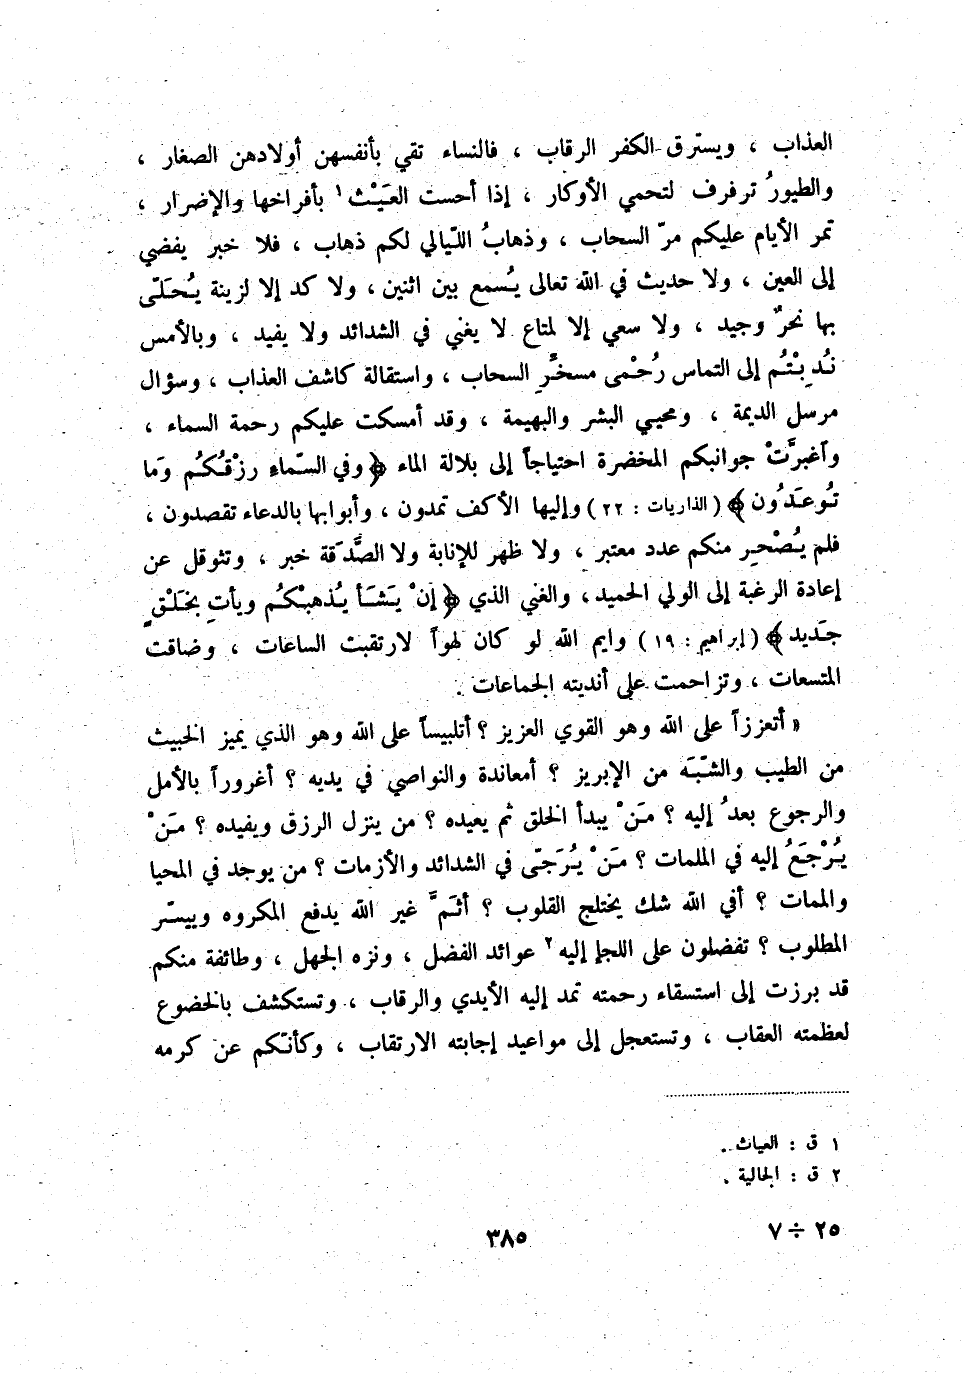 العذاب ، ويسترق الكفر الرقاب ، فالنساء تقي بأنفسهن أولادهن الصغار ،
والطيورُ ترفرف لتحمي الأوكار ، إذا أحست العَيْث١ بأفراخها والإضرار ،
تمر الأيام عليكم مرّ السحاب ، وذهابُ اللّيالي لكم ذهاب ، فلا خبر يفضي
إلى العين ، ولا حديث في الله تعالى يُسمع بين اثنين ، ولا كد إلا لزينة يُحَلّى
بها نحرٌ وجيد ، ولا سعي إلا لمتاع لا يغني في الشدائد ولا يفيد ، وبالأمس
نُدِبْتُم إلى التماس رُحْمى مسخّرِ السحاب ، واستقالة كاشف العذاب ، وسؤال
مرسل الديمة ، ومحيي البشر والبهيمة ، وقد أمسكت عليكم رحمة السماء ،
واغبرَّتْ جوانبكم المخضرة احتياجاً إلى بلالة الماء ﴿وفي السّماءِ رزْقُكُم وَما
تُوعَدُون﴾ (الذاريات : ٢٢) وإليها الأكف تمدون ، وأبوابها بالدعاء تقصدون ،
فلم يُصْحِر منكم عدد معتبر ، ولا ظهر للإنابة ولا الصَّدَقة خبر ، وتثوقل عن
إعادة الرغبة إلى الولي الحميد ، والغني الذي ﴿إنْ يَشَأ يُذهبْكُم ويأتِ بخَلْقٍ
جَديد﴾ (إبراهيم : ١٩) وايم الله لو كان لهواً لارتقبت الساعات ، وضاقت
المتسعات ، وتزاحمت على أنديته الجماعات .
« أتعززاً على الله وهو القوي العزيز ؟ أتلبيساً على الله وهو الذي يميز الخبيث
من الطيب والشّبَه من الإبريز ؟ أمعاندة والنواصي في يديه ؟ أغروراً بالأمل
والرجوع بعدُ إليه ؟ مَنْ يبدأ الخلق ثم يعيده ؟ من ينزل الرزق ويفيده ؟ مَنْ
يُرْجَعُ إليه في الملمات ؟ مَنْ يُرَجّى في الشدائد والأزمات ؟ من يوجد في المحيا
والممات ؟ أفي الله شك يختلج القلوب ؟ أثَمَّ غير الله يدفع المكروه وييسّر
المطلوب ؟ تفضلون على اللجإ إليه٢ عوائد الفضل ، ونزه الجهل ، وطائفة منكم
قد برزت إلى استسقاء رحمته تمد إليه الأيدي والرقاب ، وتستكشف بالخضوع
لعظمته العقاب ، وتستعجل إلى مواعيد إجابته الارتقاب ، وكأنّكم عن كرمه
١ ق : العياث .
٢ ق : الجالية .
٢٥ ÷ ٧
٣٨٥